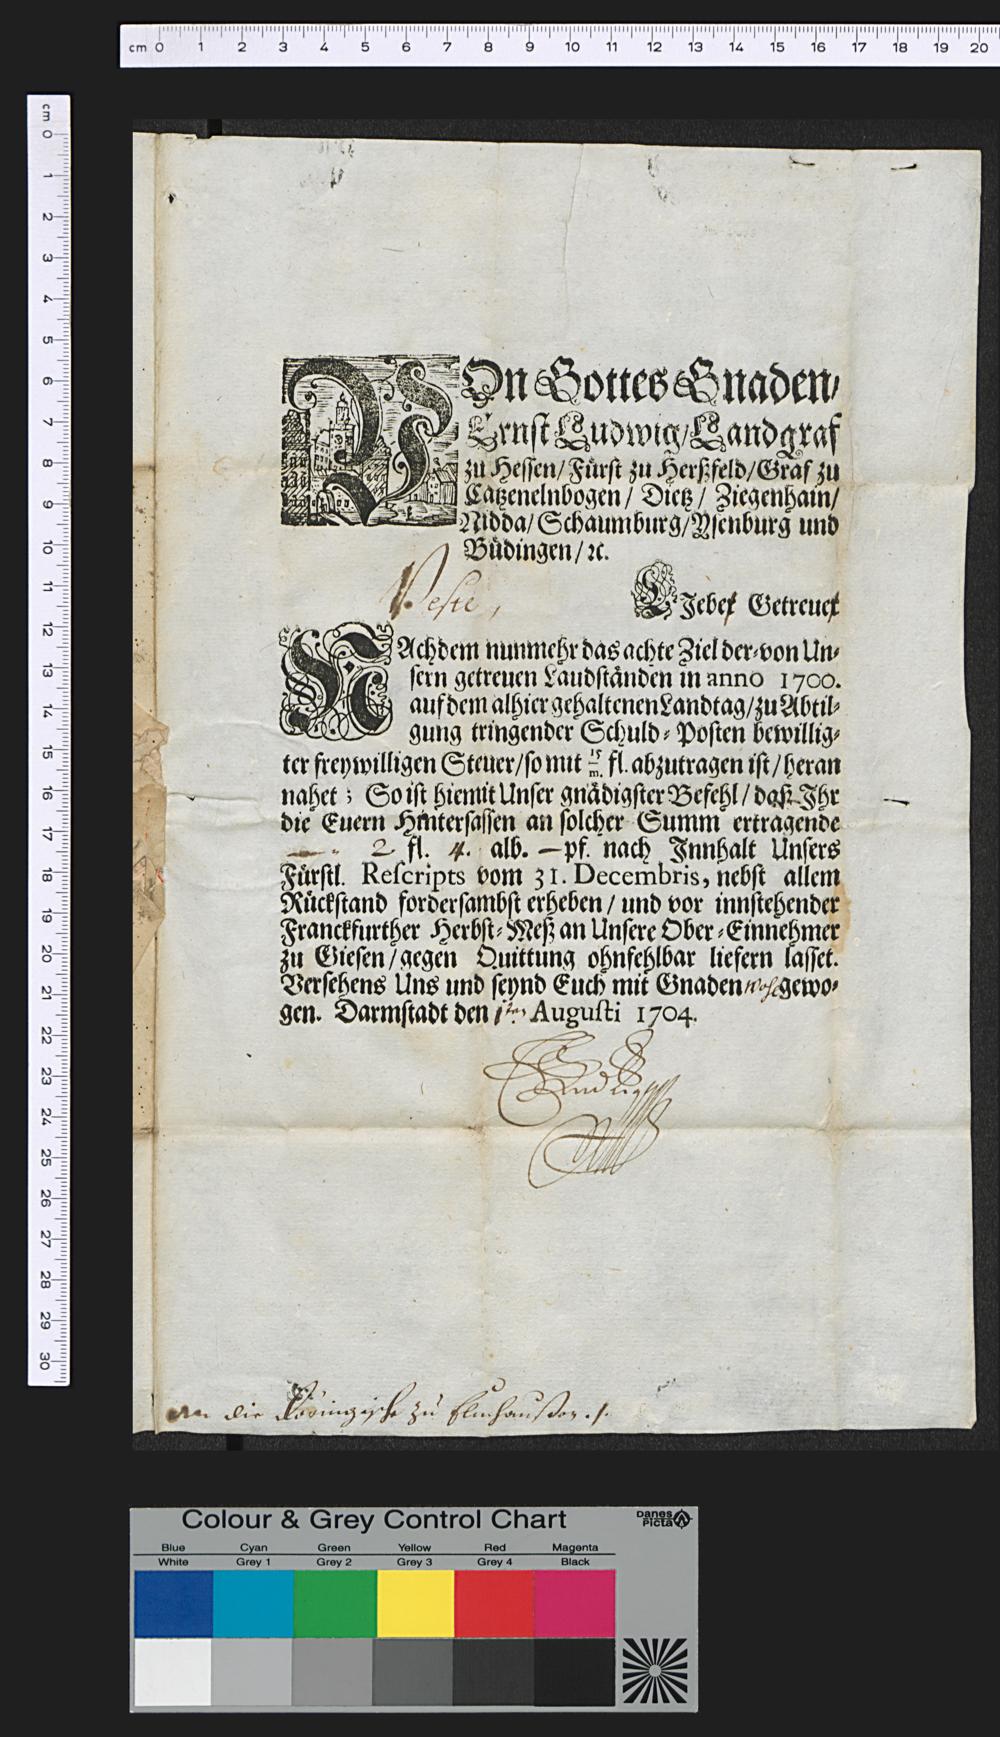 cm 0 1 2 3 4 5 6 7 8 9 10 11 12 13 14 15 16 17 18 19 20
cm 0 1 2 3 4 5 6 7 8 9 10 11 12 13 14 15 16 17 18 19 20 21 22 23 24 25 26 27 28 29 30
VOn Gottes Gnaden/
Ernst Ludwig/Landgraf
zu Hessen/Fürst zu Herßfeld/Graf zu
Catzenelnbogen/ Dietz/ Ziegenhain/
Nidda/Schaumburg/Ysenburg und
Büdingen/ ꝛc.
Veste, LJebe Getreue
NAchdem nunmehr das achte Ziel der-von Un-
sern getreuen Landständen in anno 1700.
auf dem alhier gehaltenen Landtag/zu Abtil-
gung tringender Schuld-Posten bewillig-
ter freywilligen Steuer/so mit 15/m. fl. abzutragen ist/heran
nahet; So ist hiemit Unser gnädigster Befehl/ daß Ihr
die Euern Hintersassen an solcher Summ ertragende
— 2 fl. 4. alb. — pf. nach Innhalt Unsers
Fürstl. Rescripts vom 31. Decembris, nebst allem
Rückstand fordersambst erheben/ und vor innstehender
Franckfurther Herbst-Meß an Unsere Ober-Einnehmer
zu Giesen/gegen Quittung ohnfehlbar liefern lasset.
Versehens Uns und seynd Euch mit Gnaden wohl gewo-
gen. Darmstadt den 1ten Augusti 1704.
An die zu
Colour & Grey Control Chart
Danes Picta
Blue Cyan Green Yellow Red Magenta
White Grey 1 Grey 2 Grey 3 Grey 4 Black